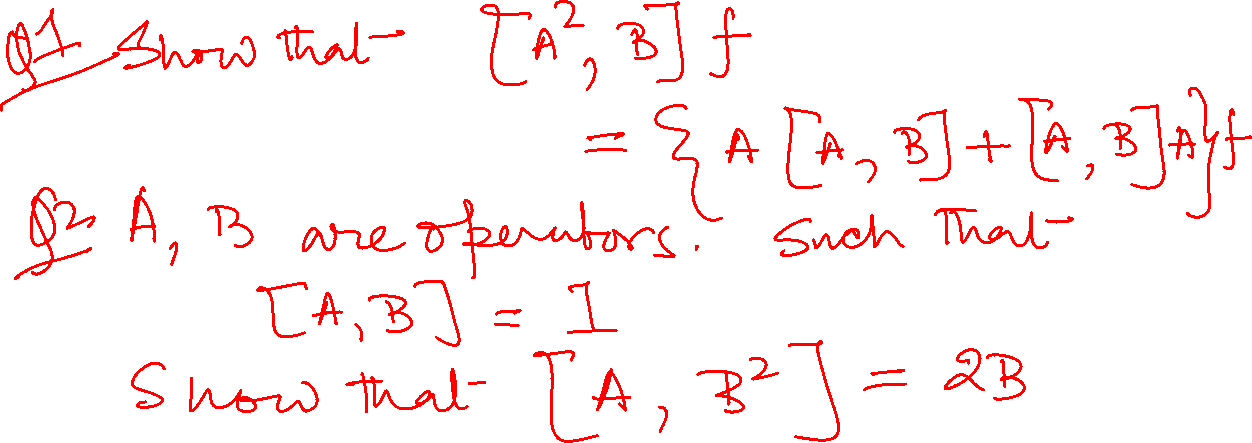 Q1 Show that [A², B] f
= { A [A, B] + [A, B] A } f
Q2 A, B are operators. Such that
[A, B] = 1
Show that [A, B²] = 2B